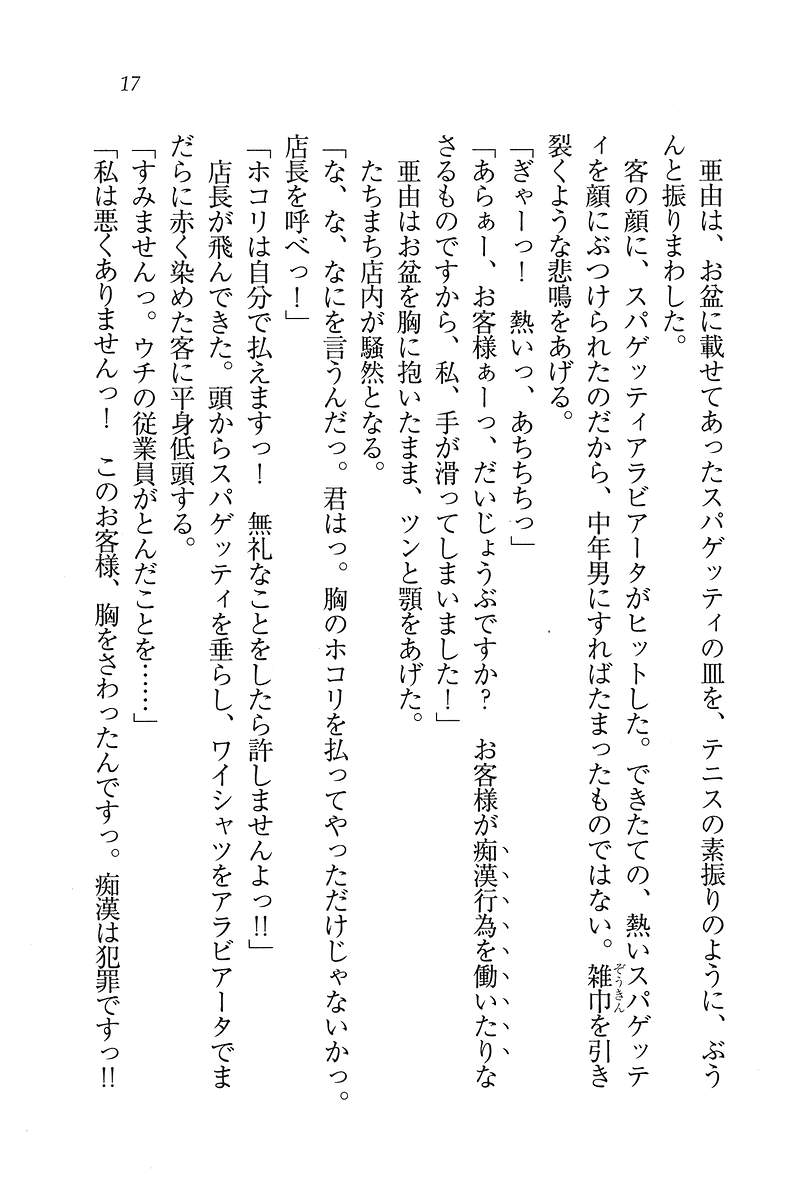 17
亜由は、お盆に載せてあったスパゲッティの皿を、テニスの素振りのように、ぶう
んと振りまわした。
客の顔に、スパゲッティアラビアータがヒットした。できたての、熱いスパゲッテ
ィを顔にぶつけられたのだから、中年男にすればたまったものではない。雑巾を引き
ぞうきん
裂くような悲鳴をあげる。
「ぎゃーっ！　熱いっ、あちちちっ」
「あらぁー、お客様ぁーっ、だいじょうぶですか？　お客様が痴漢行為を働いたりな
さるものですから、私、手が滑ってしまいました！」
亜由はお盆を胸に抱いたまま、ツンと顎をあげた。
たちまち店内が騒然となる。
「な、な、なにを言うんだっ。君はっ。胸のホコリを払ってやっただけじゃないかっ。
店長を呼べっ！」
「ホコリは自分で払えますっ！　無礼なことをしたら許しませんよっ!!」
店長が飛んできた。頭からスパゲッティを垂らし、ワイシャツをアラビアータでま
だらに赤く染めた客に平身低頭する。
「すみませんっ。ウチの従業員がとんだことを……」
「私は悪くありませんっ！　このお客様、胸をさわったんですっ。痴漢は犯罪ですっ!!